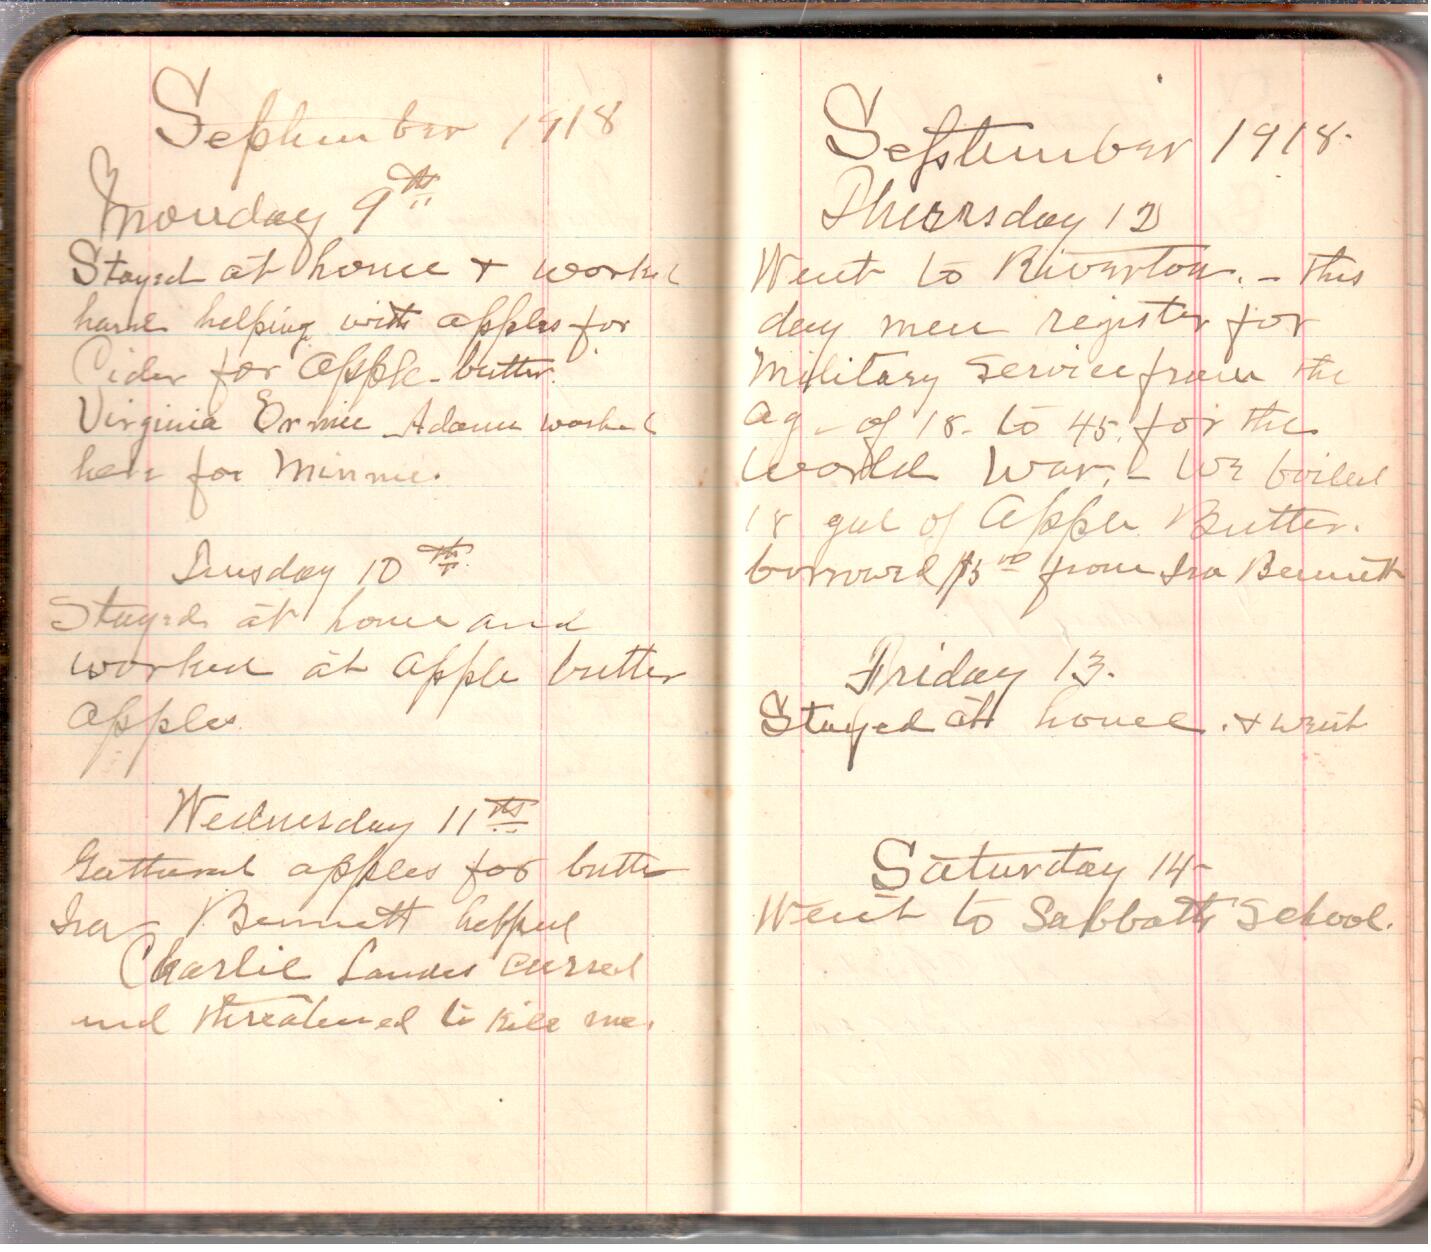 September 1918
Monday 9th
Stayed at home & worked
hard helping with apples for
Cider for Apple-butter.
Virginia Ermie Adams worked
here for Minnie.
Tuesday 10th
Stayed at home and
worked at apple butter
apples
Wednesday 11th
Gathered apples for butter
Ira Bennett helped
Charlie Landes cursed
and threatened to kill me.
September 1918.
Thursday 12
Went to Riverton. - this
day men register for
Military Service from the
age of 18 to 45, for the
World War. - We boiled
18 gal of Apple Butter.
borrowed $5.00 from Ira Bennett
Friday 13.
Stayed at home. & went
Saturday 14-
Went to Sabbath School.